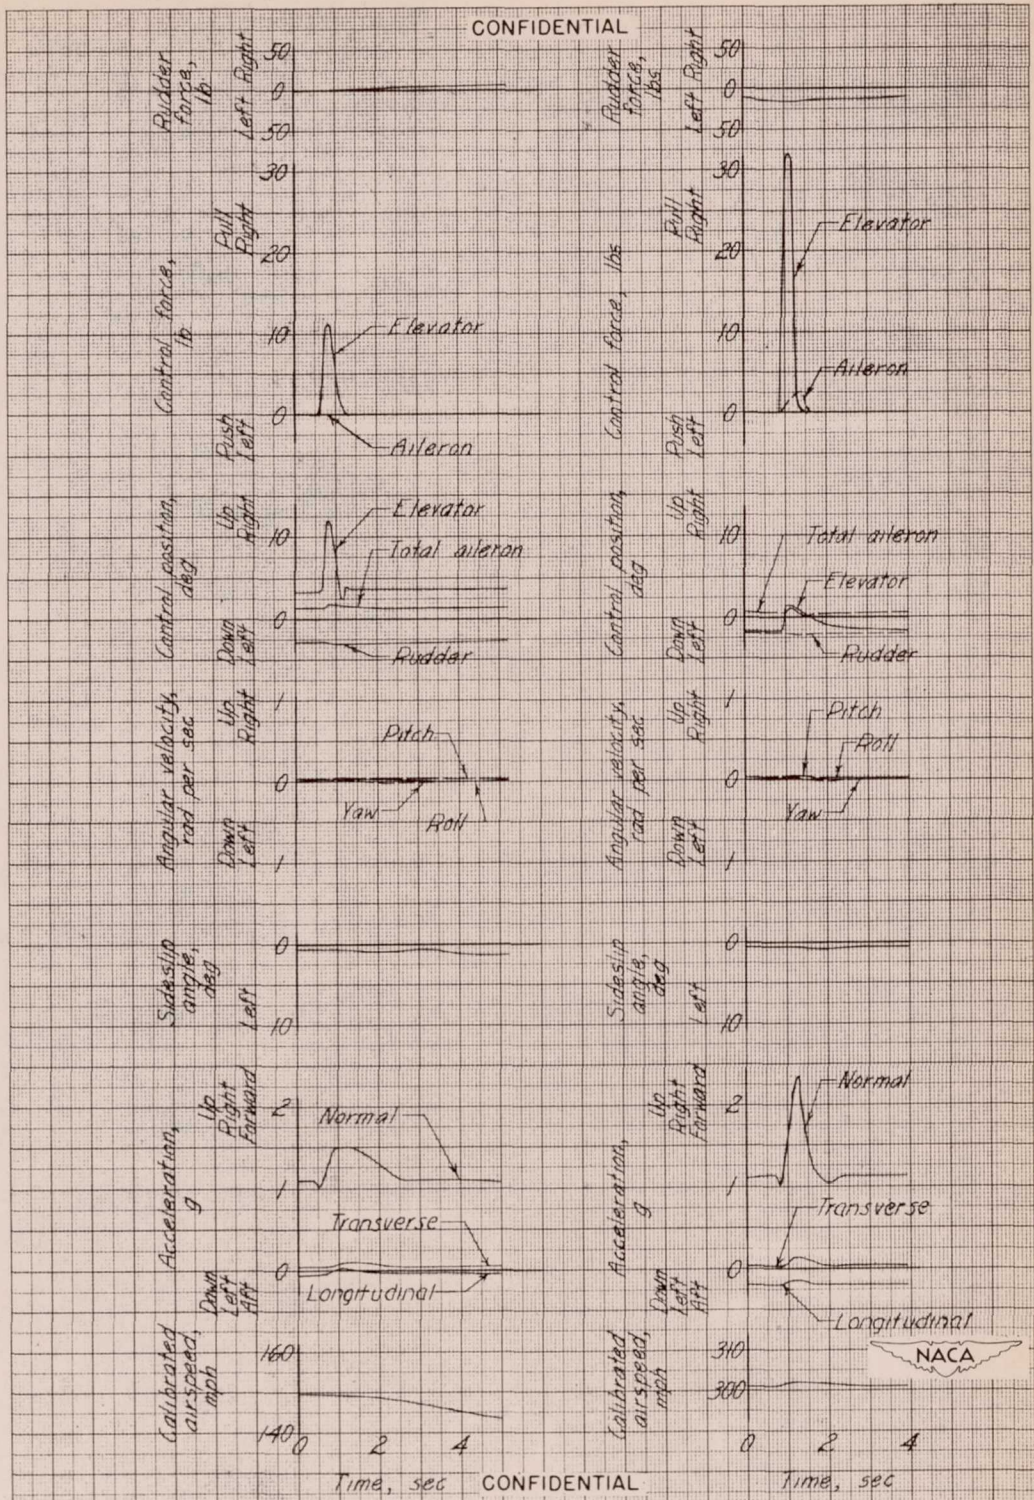 CONFIDENTIAL
Rudder
force,
lb
Left Right
50
0
50
Control force,
lb
Pull
Right
Push
Left
30
20
10
0
Elevator
Aileron
Control position,
deg
Up
Right
Down
Left
10
0
Elevator
Total aileron
Rudder
Angular velocity,
rad per sec
Up
Right
Down
Left
1
0
1
Pitch
Yaw
Roll
Sideslip
angle,
deg
Left
0
10
Acceleration,
g
Up
Right
Forward
Down
Left
Aft
2
1
0
Normal
Transverse
Longitudinal
Calibrated
airspeed,
mph
160
140
0 2 4
Time, sec
Rudder
force,
lbs
Left Right
50
0
50
Control force, lbs
Pull
Right
Push
Left
30
20
10
0
Elevator
Aileron
Control position,
deg
Up
Right
Down
Left
10
0
Total aileron
Elevator
Rudder
Angular velocity,
rad per sec
Up
Right
Down
Left
1
0
1
Pitch
Roll
Yaw
Sideslip
angle,
deg
Left
0
10
Acceleration,
g
Up
Right
Forward
Down
Left
Aft
2
1
0
Normal
Transverse
Longitudinal
Calibrated
airspeed,
mph
310
300
0 2 4
Time, sec
NACA
CONFIDENTIAL